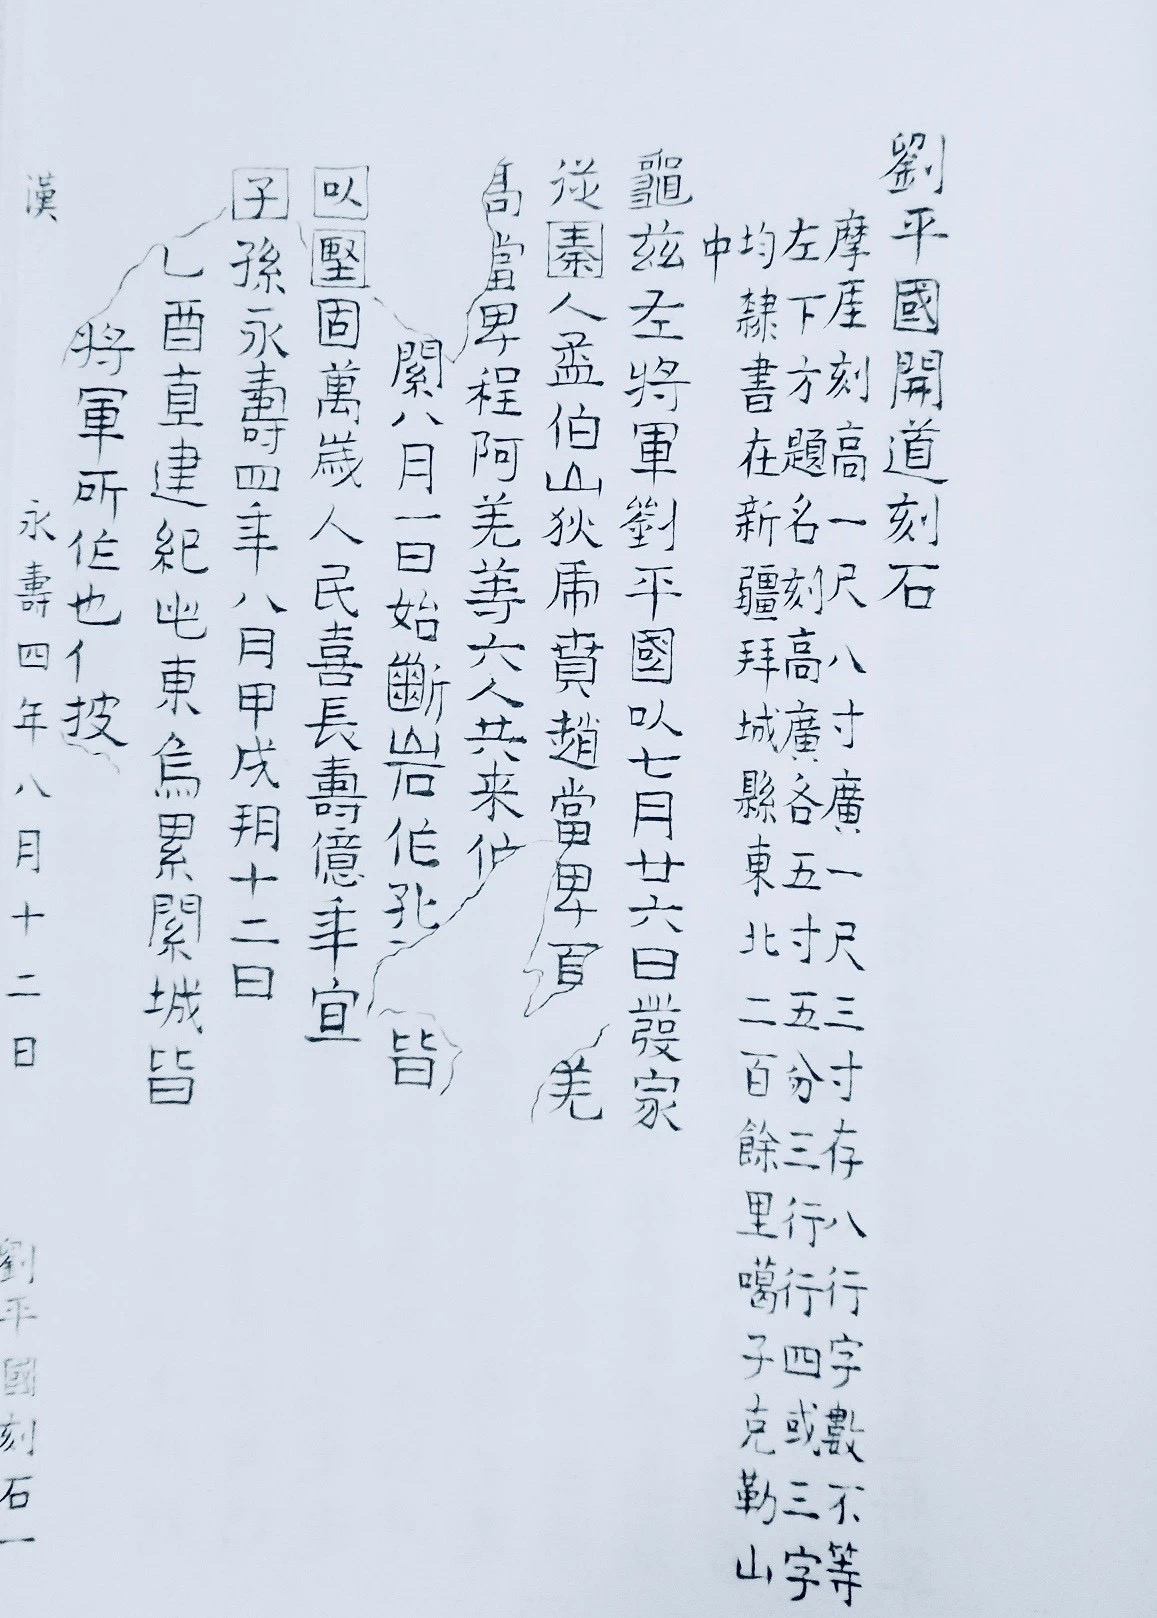 劉平國開道刻石
摩厓刻高一尺八寸廣一尺三寸存八行字數不等
左下方題名刻高廣各五寸五分三行行四或三字
均隸書在新疆拜城縣東北二百餘里噶子克勒山
中
龜茲左將軍劉平國以七月廿六日發家
從秦人孟伯山狄虎賁趙當卑夏羌
當卑程阿羌等六人共来作
關八月一日始斷岩作孔 皆
以堅固萬歲人民喜長壽億年宜
子孫永壽四年八月甲戌朔十二日
乙酉直建紀此東烏累關城皆
將軍所作也 披
漢 永壽四年八月十二日 劉平國刻石一